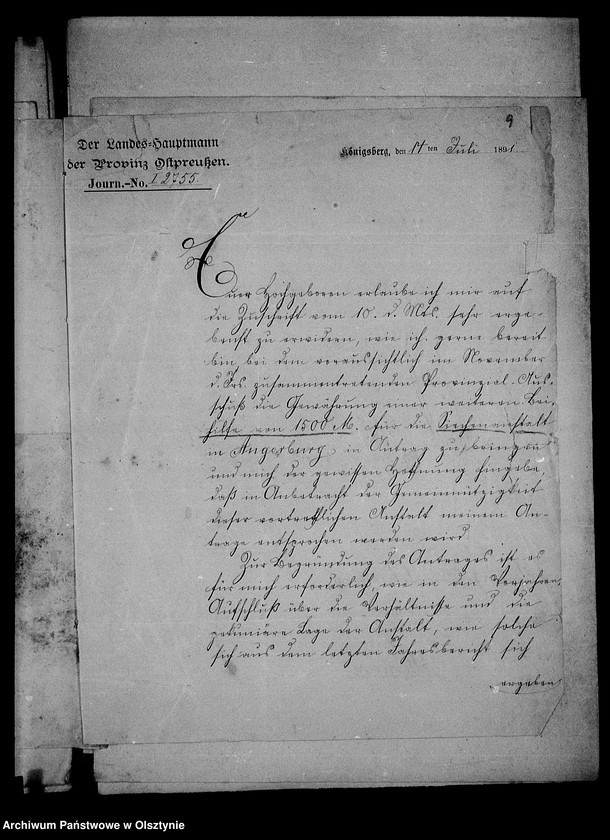 9
Der Landes-Hauptmann
der Provinz Ostpreußen.
Journ.-No. I 2755.
Königsberg, den 14 ten Juli 1891.
Euer Hochgeboren erlaube ich mir auf
die Zuschrift vom 10. d. Mts. sehr erge-
benst zu erwidern, wie ich gerne bereit
bin, bei dem voraussichtlich im November
d. Jrs. zusammentretenden Provinzial-Aus-
schuß die Gewährung einer weiteren Bei-
hilfe von 1500 M. für die Siechenanstalt
in Angerburg in Antrag zu bringen
und mich der gewissen Hoffnung hingebe,
daß in Anbetracht der Gemeinnützigkeit
dieser vortrefflichen Anstalt meinem An-
trage entsprochen werden wird.
Zur Begründung des Antrages ist es
für mich erforderlich, wie in den Vorjahren,
Aufschluß über die Verhältnisse und die
pekuniäre Lage der Anstalt, wie solche
sich aus dem letzten Jahresbericht sich
ergeben
Archiwum Państwowe w Olsztynie